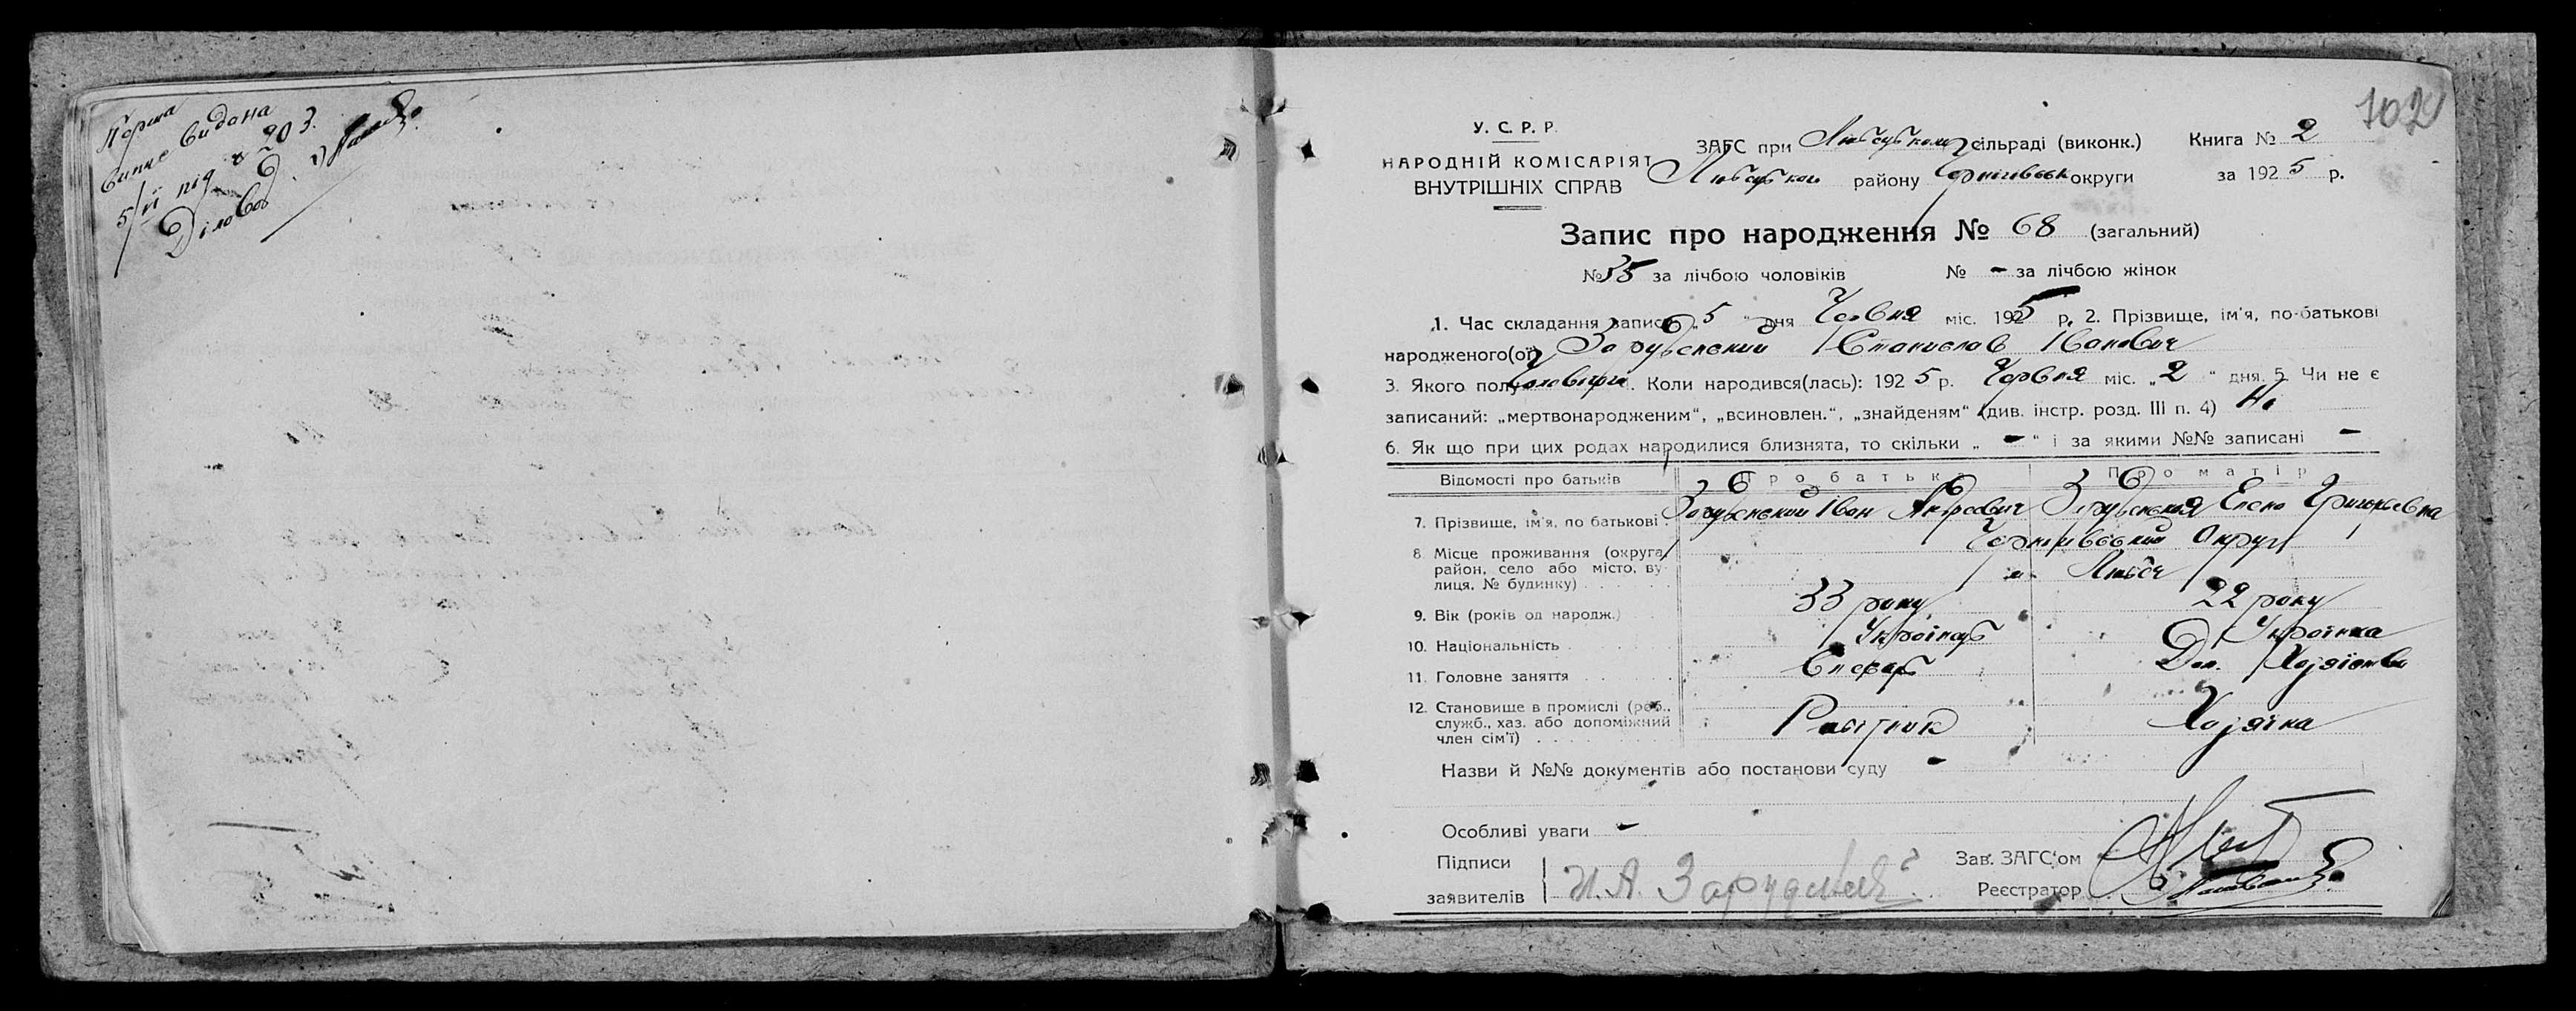 Перша
випис видана
5/VI під № 203.
Діловод
102
У. С. Р. Р.
НАРОДНІЙ КОМІСАРІЯТ
ВНУТРІШНІХ СПРАВ
ЗАГС при Любецьком сільраді (виконк.) Книга № 2
Любецьком району Чернігівськ округи за 1925 р.
Запис про народження № 68 (загальний)
№ 35 за лічбою чоловіків № - за лічбою жінок
1. Час складання запису „5“ дня Червня міс. 1925 р. 2. Прізвище, ім'я, по-батькові
народженого(ої) Зарудський Станислав Іванович
3. Якого полу Коли народився(лась): 1925 р. Червня міс. „2“ дня. 5. Чи не є
записаний: „мертвонародженим“, „всиновлен.“, „знайденям“ (див. інстр. розд. III п. 4) Ні
6. Як що при цих родах народилися близнята, то скільки „-“ і за якими №№ записані -
Відомості про батьків Про батька Про матір
7. Прізвище, ім'я, по батькові Іван Андреевич Елена Григорьевна
8. Місце проживання (округа, район, село або місто, вулиця, № будинку) Чернігівський Округ
м. Любеч
9. Вік (років од народж.) 33 року 22 року
10. Національність Українець Українка
11. Головне заняття Дом. Хозяїство
12. Становище в промислі (роб., служб., хаз. або допоміжний член сім'ї) Хозяїка
Назви й №№ документів або постанови суду -
Особливі уваги -
Підписи
заявителів И. А. Зарудский
Зав. ЗАГС'ом
Реєстратор